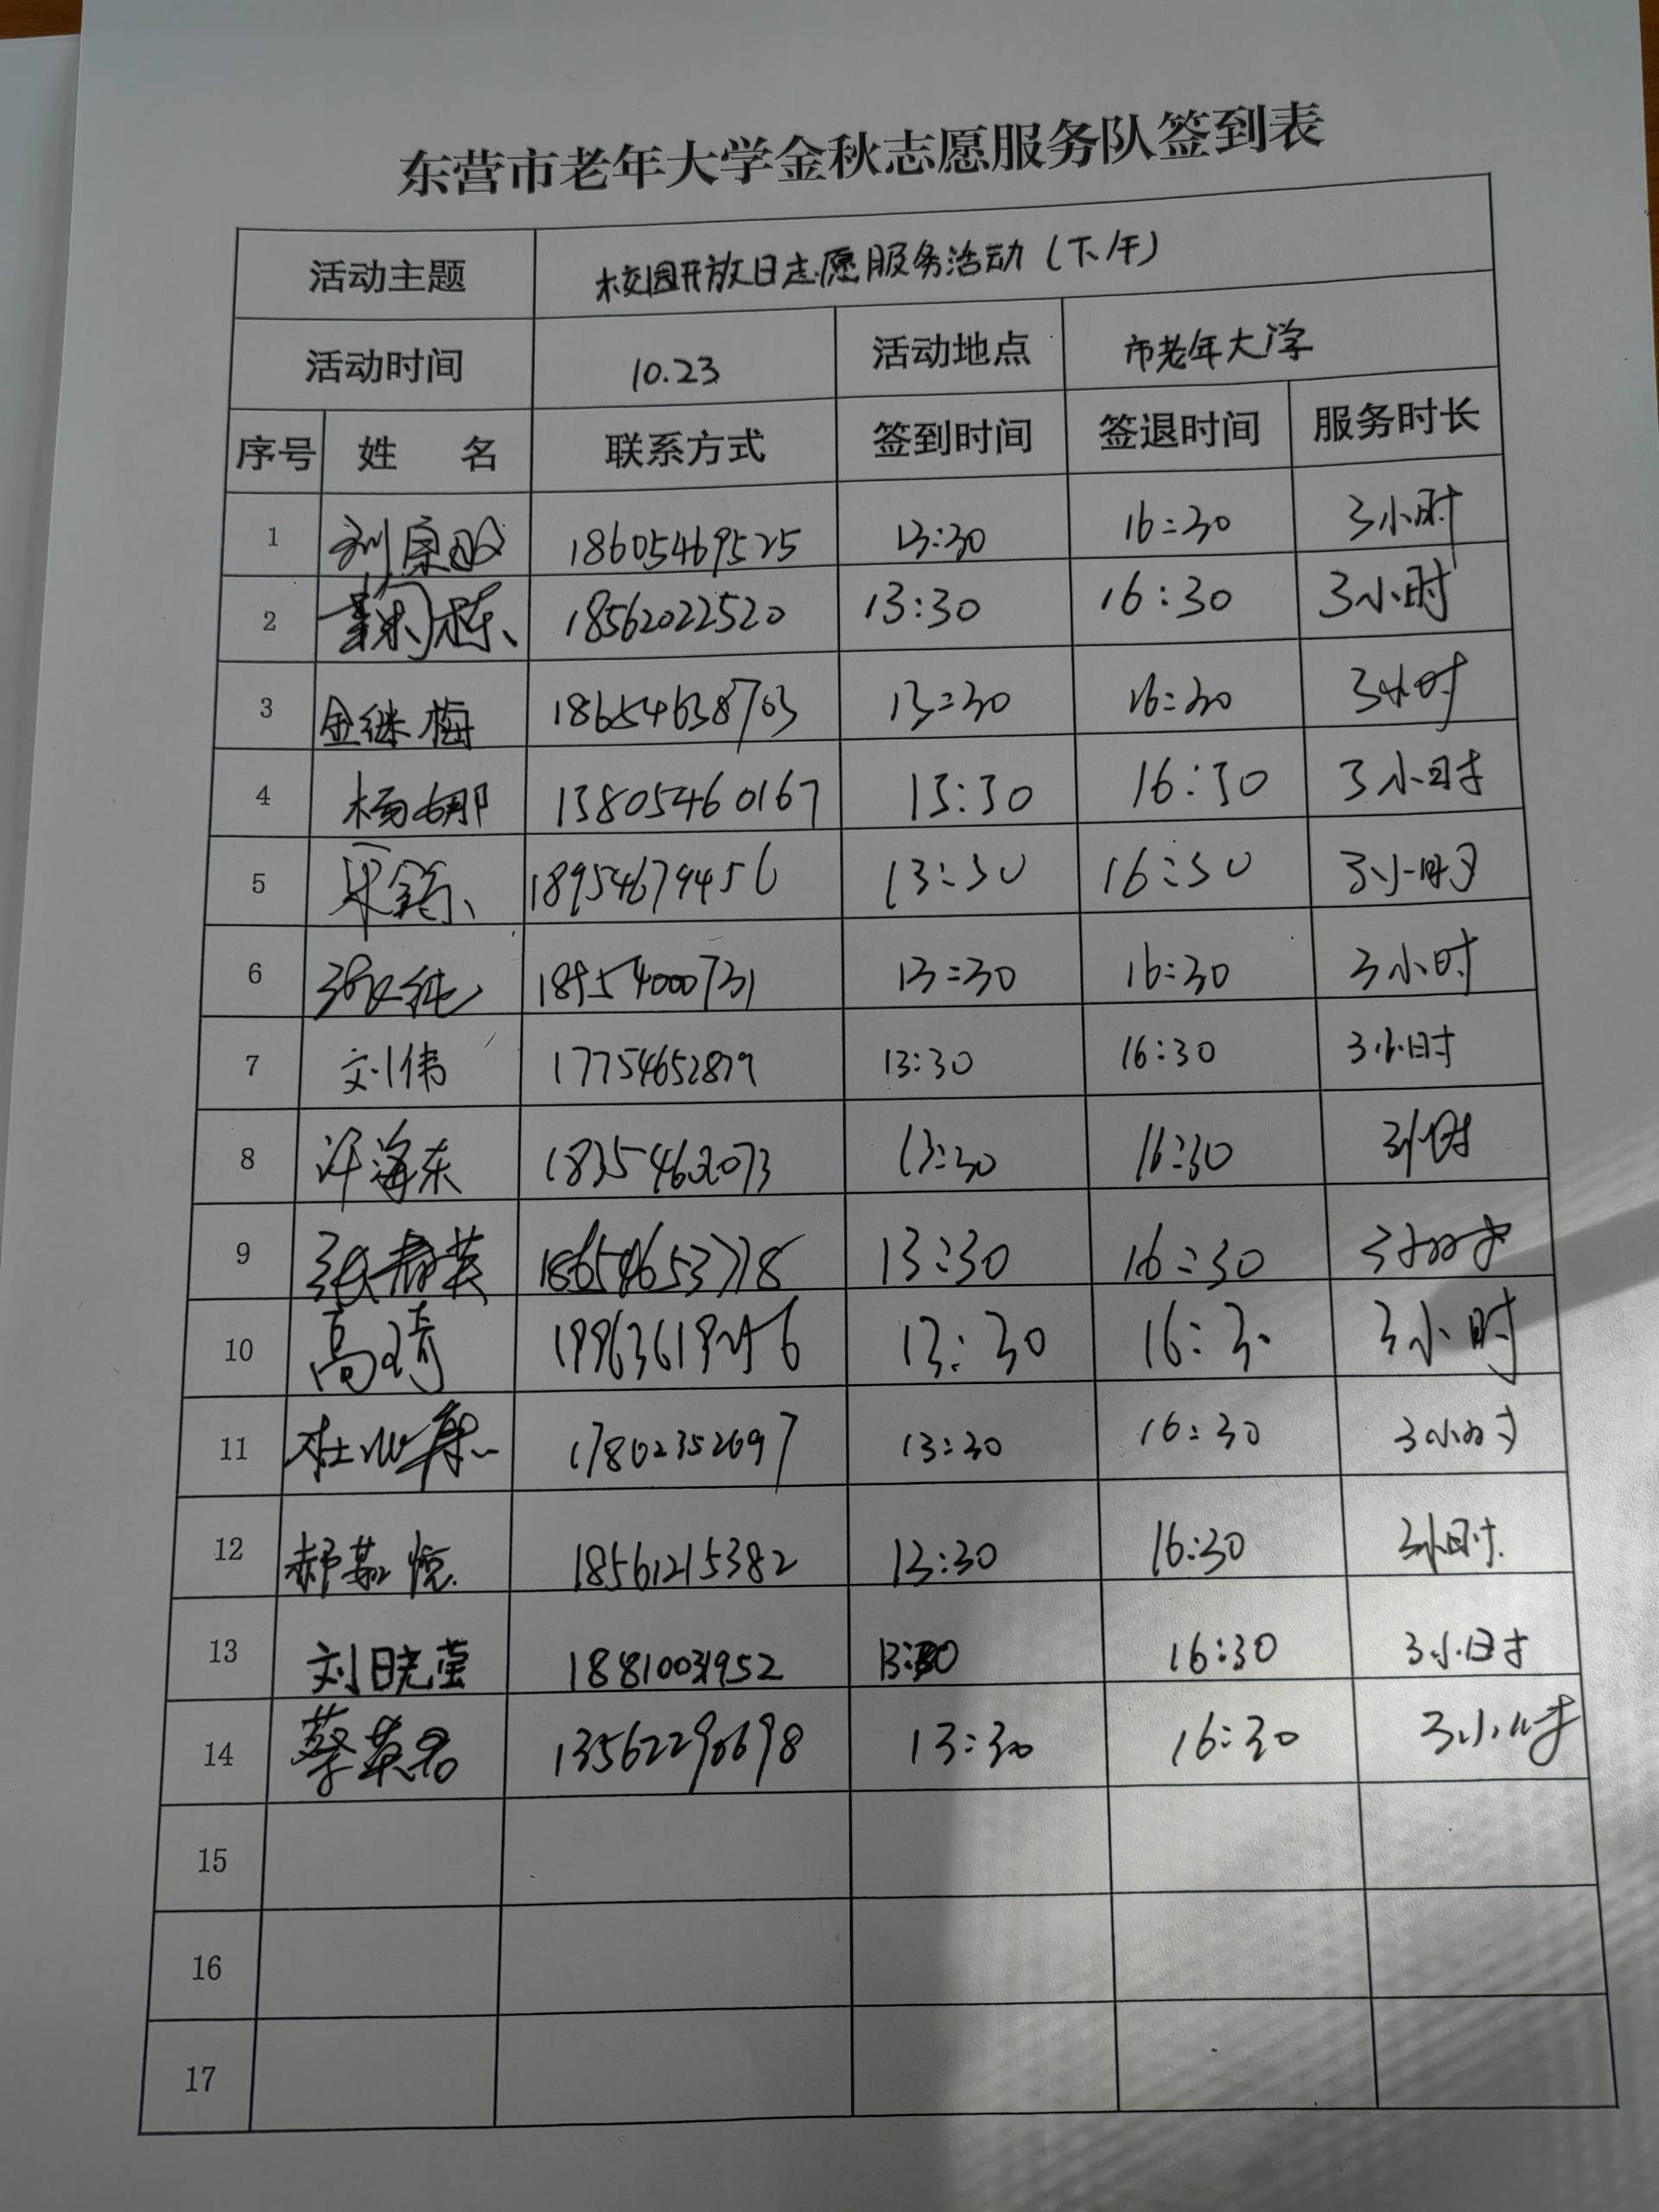 东营市老年大学金秋志愿服务队签到表
活动主题 校园开放日志愿服务活动(下午)
活动时间 10.23 活动地点 市老年大学
序号 姓 名 联系方式 签到时间 签退时间 服务时长
1 18605469525 13:30 16:30 3小时
2 18562022520 13:30 16:30 3小时
3 金继梅 18654638703 13:30 16:30 3小时
4 杨娜 13805460167 13:30 16:30 3小时
5 18954679456 13:30 16:30 3小时
6 18954000731 13:30 16:30 3小时
7 刘伟 17754652879 13:30 16:30 3小时
8 许海东 13:30 16:30 3小时
9 张春英 13:30 16:30 3小时
10 高琦 13:30 16:30 3小时
11 17802352697 13:30 16:30 3小时
12 18561215382 13:30 16:30 3小时
13 刘晓莹 13:30 16:30 3小时
14 蔡英君 13562290698 13:30 16:30 3小时
15
16
17